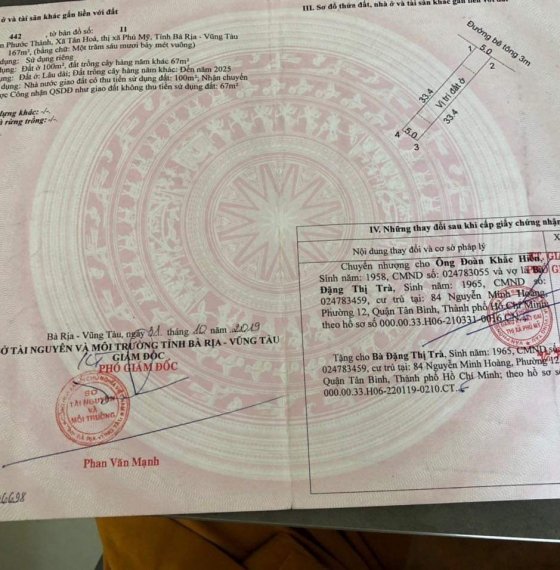 ở và tài sản khác gắn liền với đất
442 , tờ bản đồ số: 11
n Phước Thành, Xã Tân Hoà, thị xã Phú Mỹ, Tỉnh Bà Rịa - Vũng Tàu
167m², (bằng chữ: Một trăm sáu mươi bảy mét vuông)
dụng: Sử dụng riêng
dụng: Đất ở 100m², đất trồng cây hàng năm khác 67m²
dụng: Đất ở: Lâu dài; Đất trồng cây hàng năm khác: Đến năm 2025
dụng: Nhà nước giao đất có thu tiền sử dụng đất: 100m²; Nhận chuyển
ược Công nhận QSDĐ như giao đất không thu tiền sử dụng đất: 67m²
dựng khác: -/-
à rừng trồng: -/-
Bà Rịa - Vũng Tàu, ngày 31 tháng 10 năm 2019
Ở TÀI NGUYÊN VÀ MÔI TRƯỜNG TỈNH BÀ RỊA - VŨNG TÀU
GIÁM ĐỐC
PHÓ GIÁM ĐỐC
SỞ
TÀI NGUYÊN
VÀ
MÔI TRƯỜNG
Phan Văn Mạnh
III. Sơ đồ thửa đất, nhà ở và tài sản khác gắn liền với
Đường bê tông 3m
1 5.0 2
33.4 Vị trí đất ở 33.4
4 5.0 3
IV. Những thay đổi sau khi cấp giấy chứng nhận
Nội dung thay đổi và cơ sở pháp lý
Chuyển nhượng cho Ông Đoàn Khắc Hiền,
Sinh năm: 1958, CMND số: 024783055 và vợ là Bà
Đặng Thị Trà, Sinh năm: 1965, CMND số:
024783459, cư trú tại: 84 Nguyễn Minh Hoàng,
Phường 12, Quận Tân Bình, Thành phố Hồ Chí Minh;
theo hồ sơ số 000.00.33.H06-210331-0016.CN.
Tặng cho Bà Đặng Thị Trà, Sinh năm: 1965, CMND số:
024783459, cư trú tại: 84 Nguyễn Minh Hoàng, Phường 12
Quận Tân Bình, Thành phố Hồ Chí Minh; theo hồ sơ số
000.00.33.H06-220119-0210.CT.